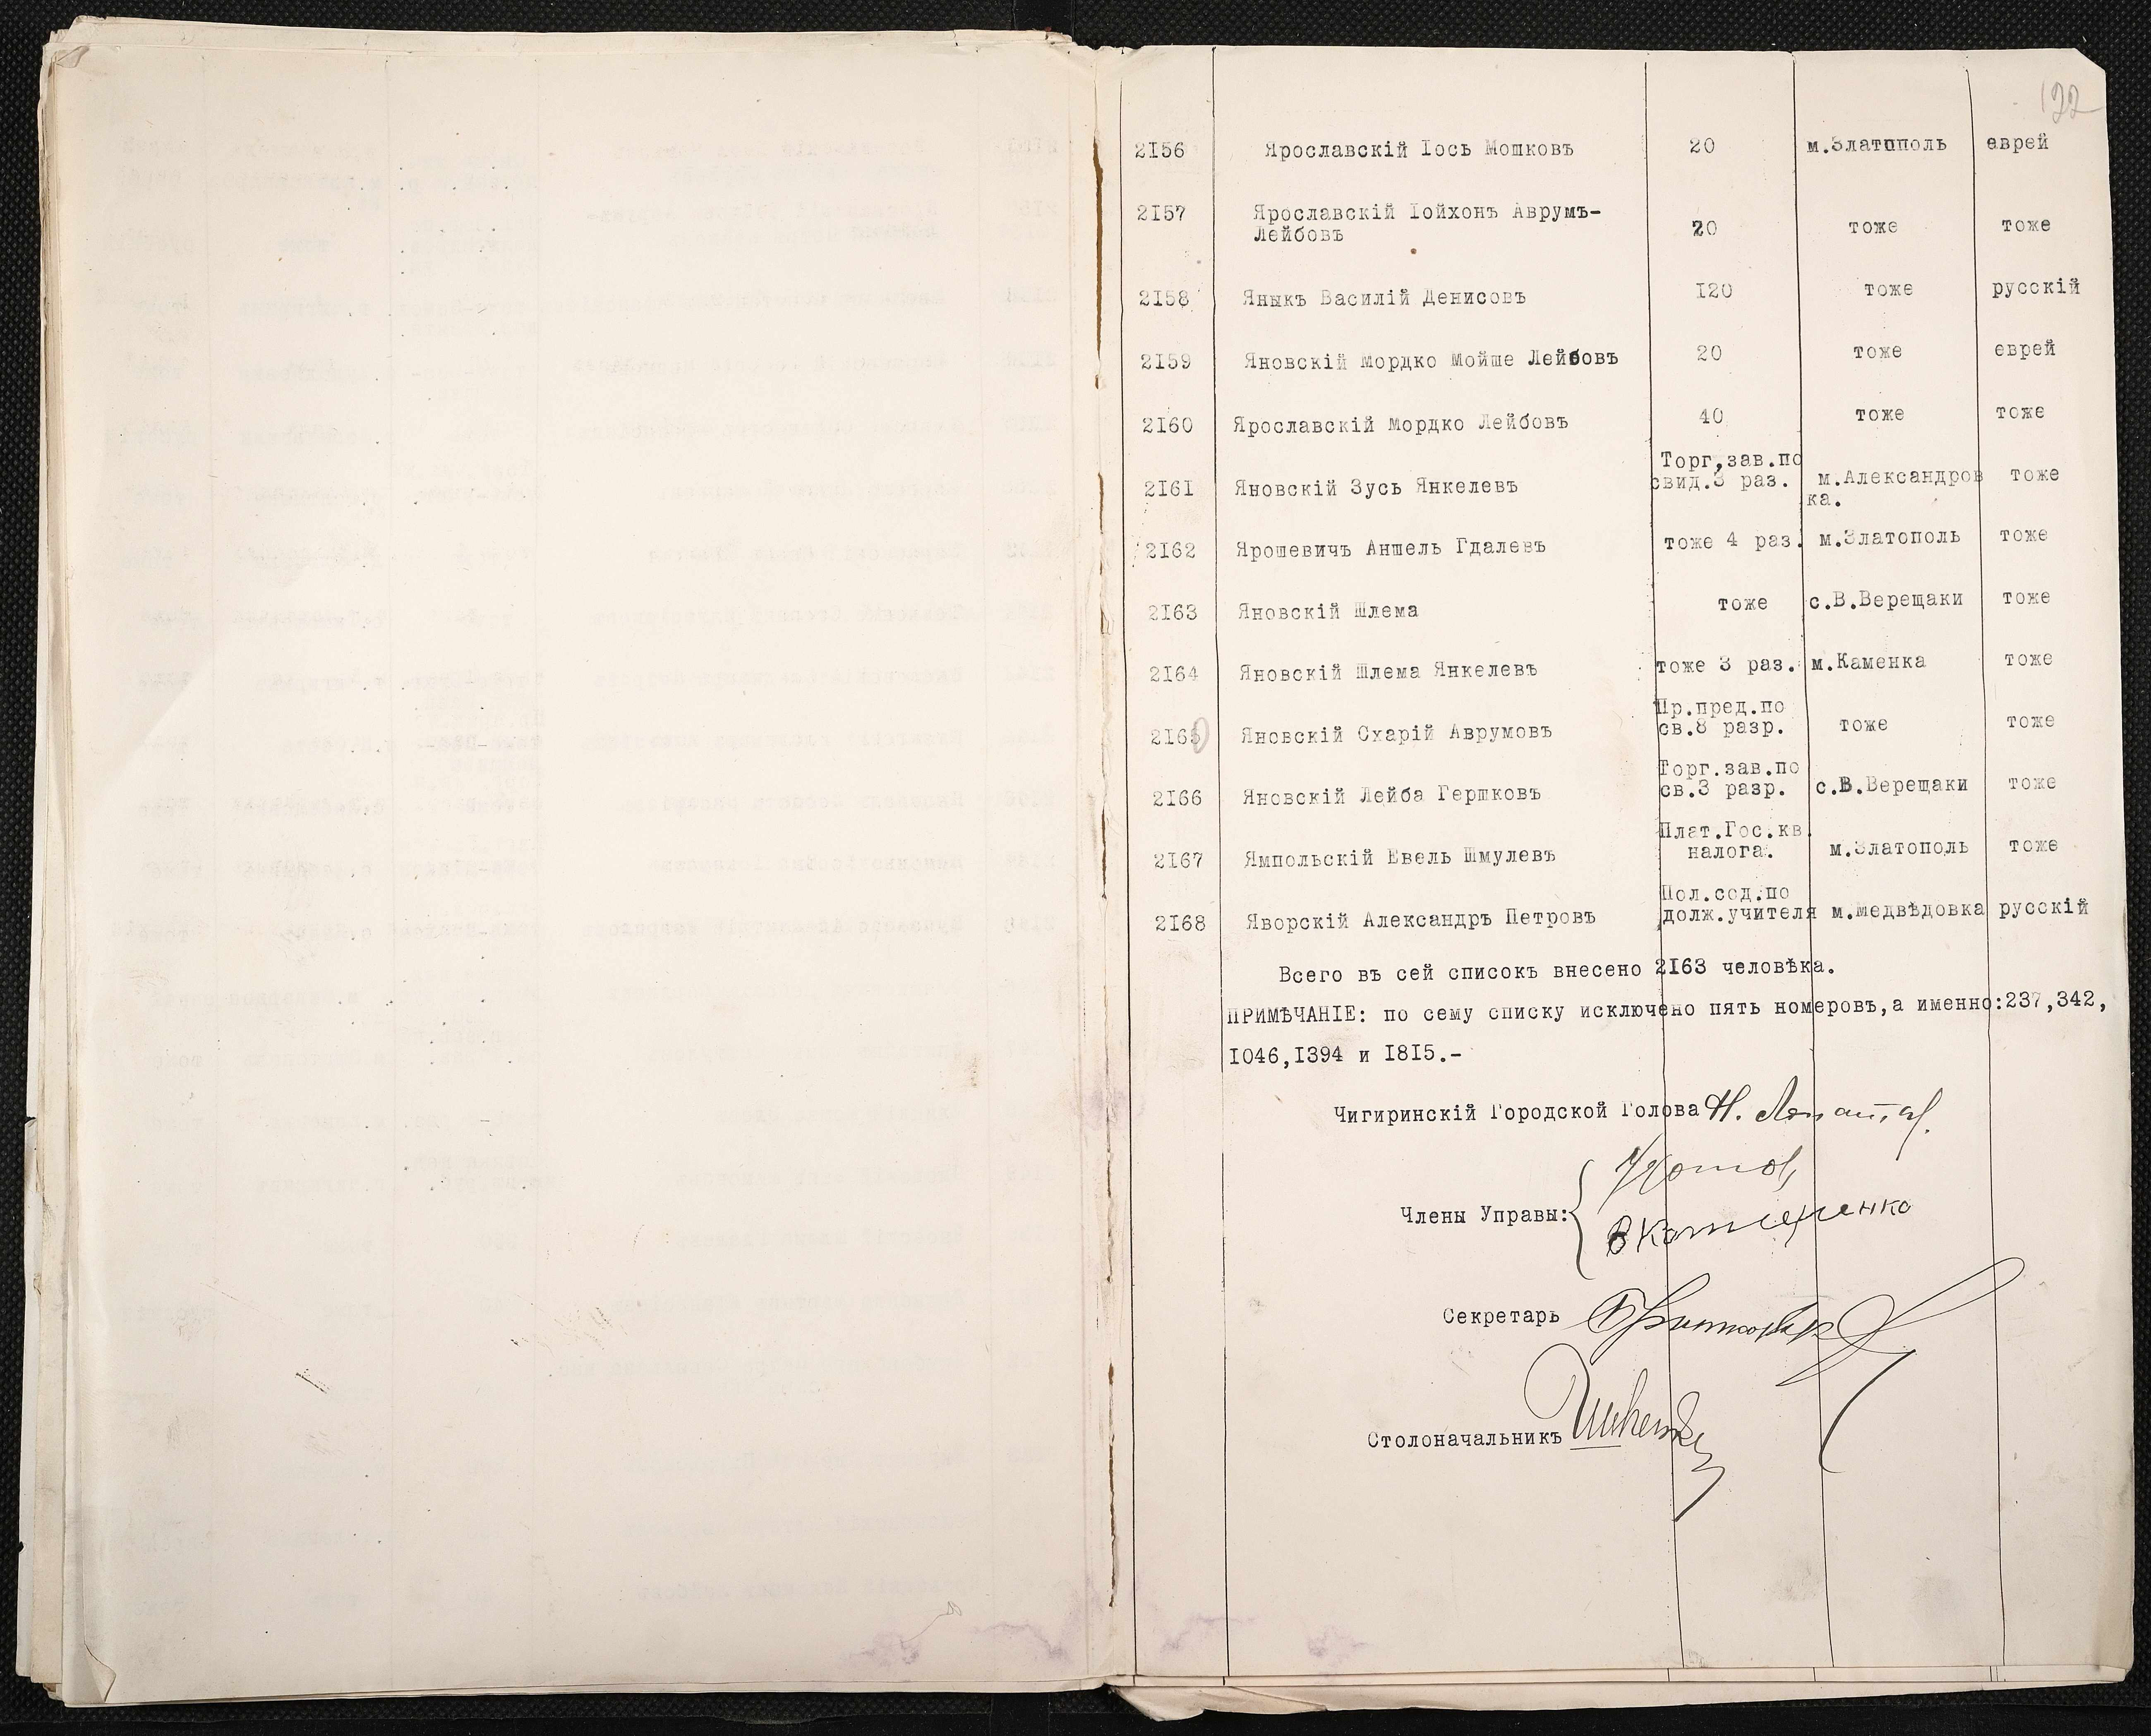 122
2156 Ярославскій Іось Мошковъ 20 м.Златополь еврей
2157 Ярославскій Іойхонъ Аврумъ-
Лейбовъ 20 тоже тоже
2158 Яныкъ Василій Денисовъ 120 тоже русскій
2159 Яновскій Мордко Мойше Лейбовъ 20 тоже еврей
2160 Ярославскій Мордко Лейбовъ 40 тоже тоже
Торг,зав.по
2161 Яновскій Зусь Янкелевъ свид.3 раз. м.Александров тоже
ка.
2162 Ярошевичъ Аншель Гдалевъ тоже 4 раз. м.Златополь тоже
2163 Яновскій Шлема тоже с.В.Верещаки тоже
2164 Яновскій Шлема Янкелевъ тоже 3 раз. м.Каменка тоже
Пр.пред.по
2165 Яновскій Схарій Аврумовъ св.8 разр. тоже тоже
Торг.зав.по
2166 Яновскій Лейба Гершковъ св.3 разр. с.В.Верещаки тоже
Плат.Гос.кв.
2167 Ямпольскій Евель Шмулевъ налога. м.Златополь тоже
Пол.сод.по
2168 Яворскій Александръ Петровъ долж.учителя м.Медвѣдовка русскій
Всего въ сей списокъ внесено 2163 человѣка.
ПРИМѢЧАНІЕ: по сему списку исключено пять номеровъ,а именно:237,342,
1046,1394 и 1815.-
Чигиринскій Городской Голова
Члены Управы:
Секретарь
Столоначальникъ